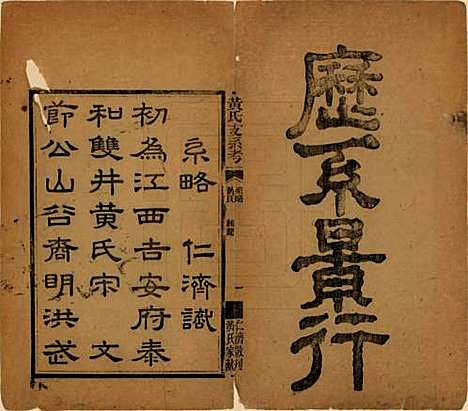 歷系景行
黃氏支系考
仁濟敬刊
黃氏家乘
系略　仁濟識
初為江西吉安府泰
和雙井黃氏宋　文
節公山谷裔明洪武